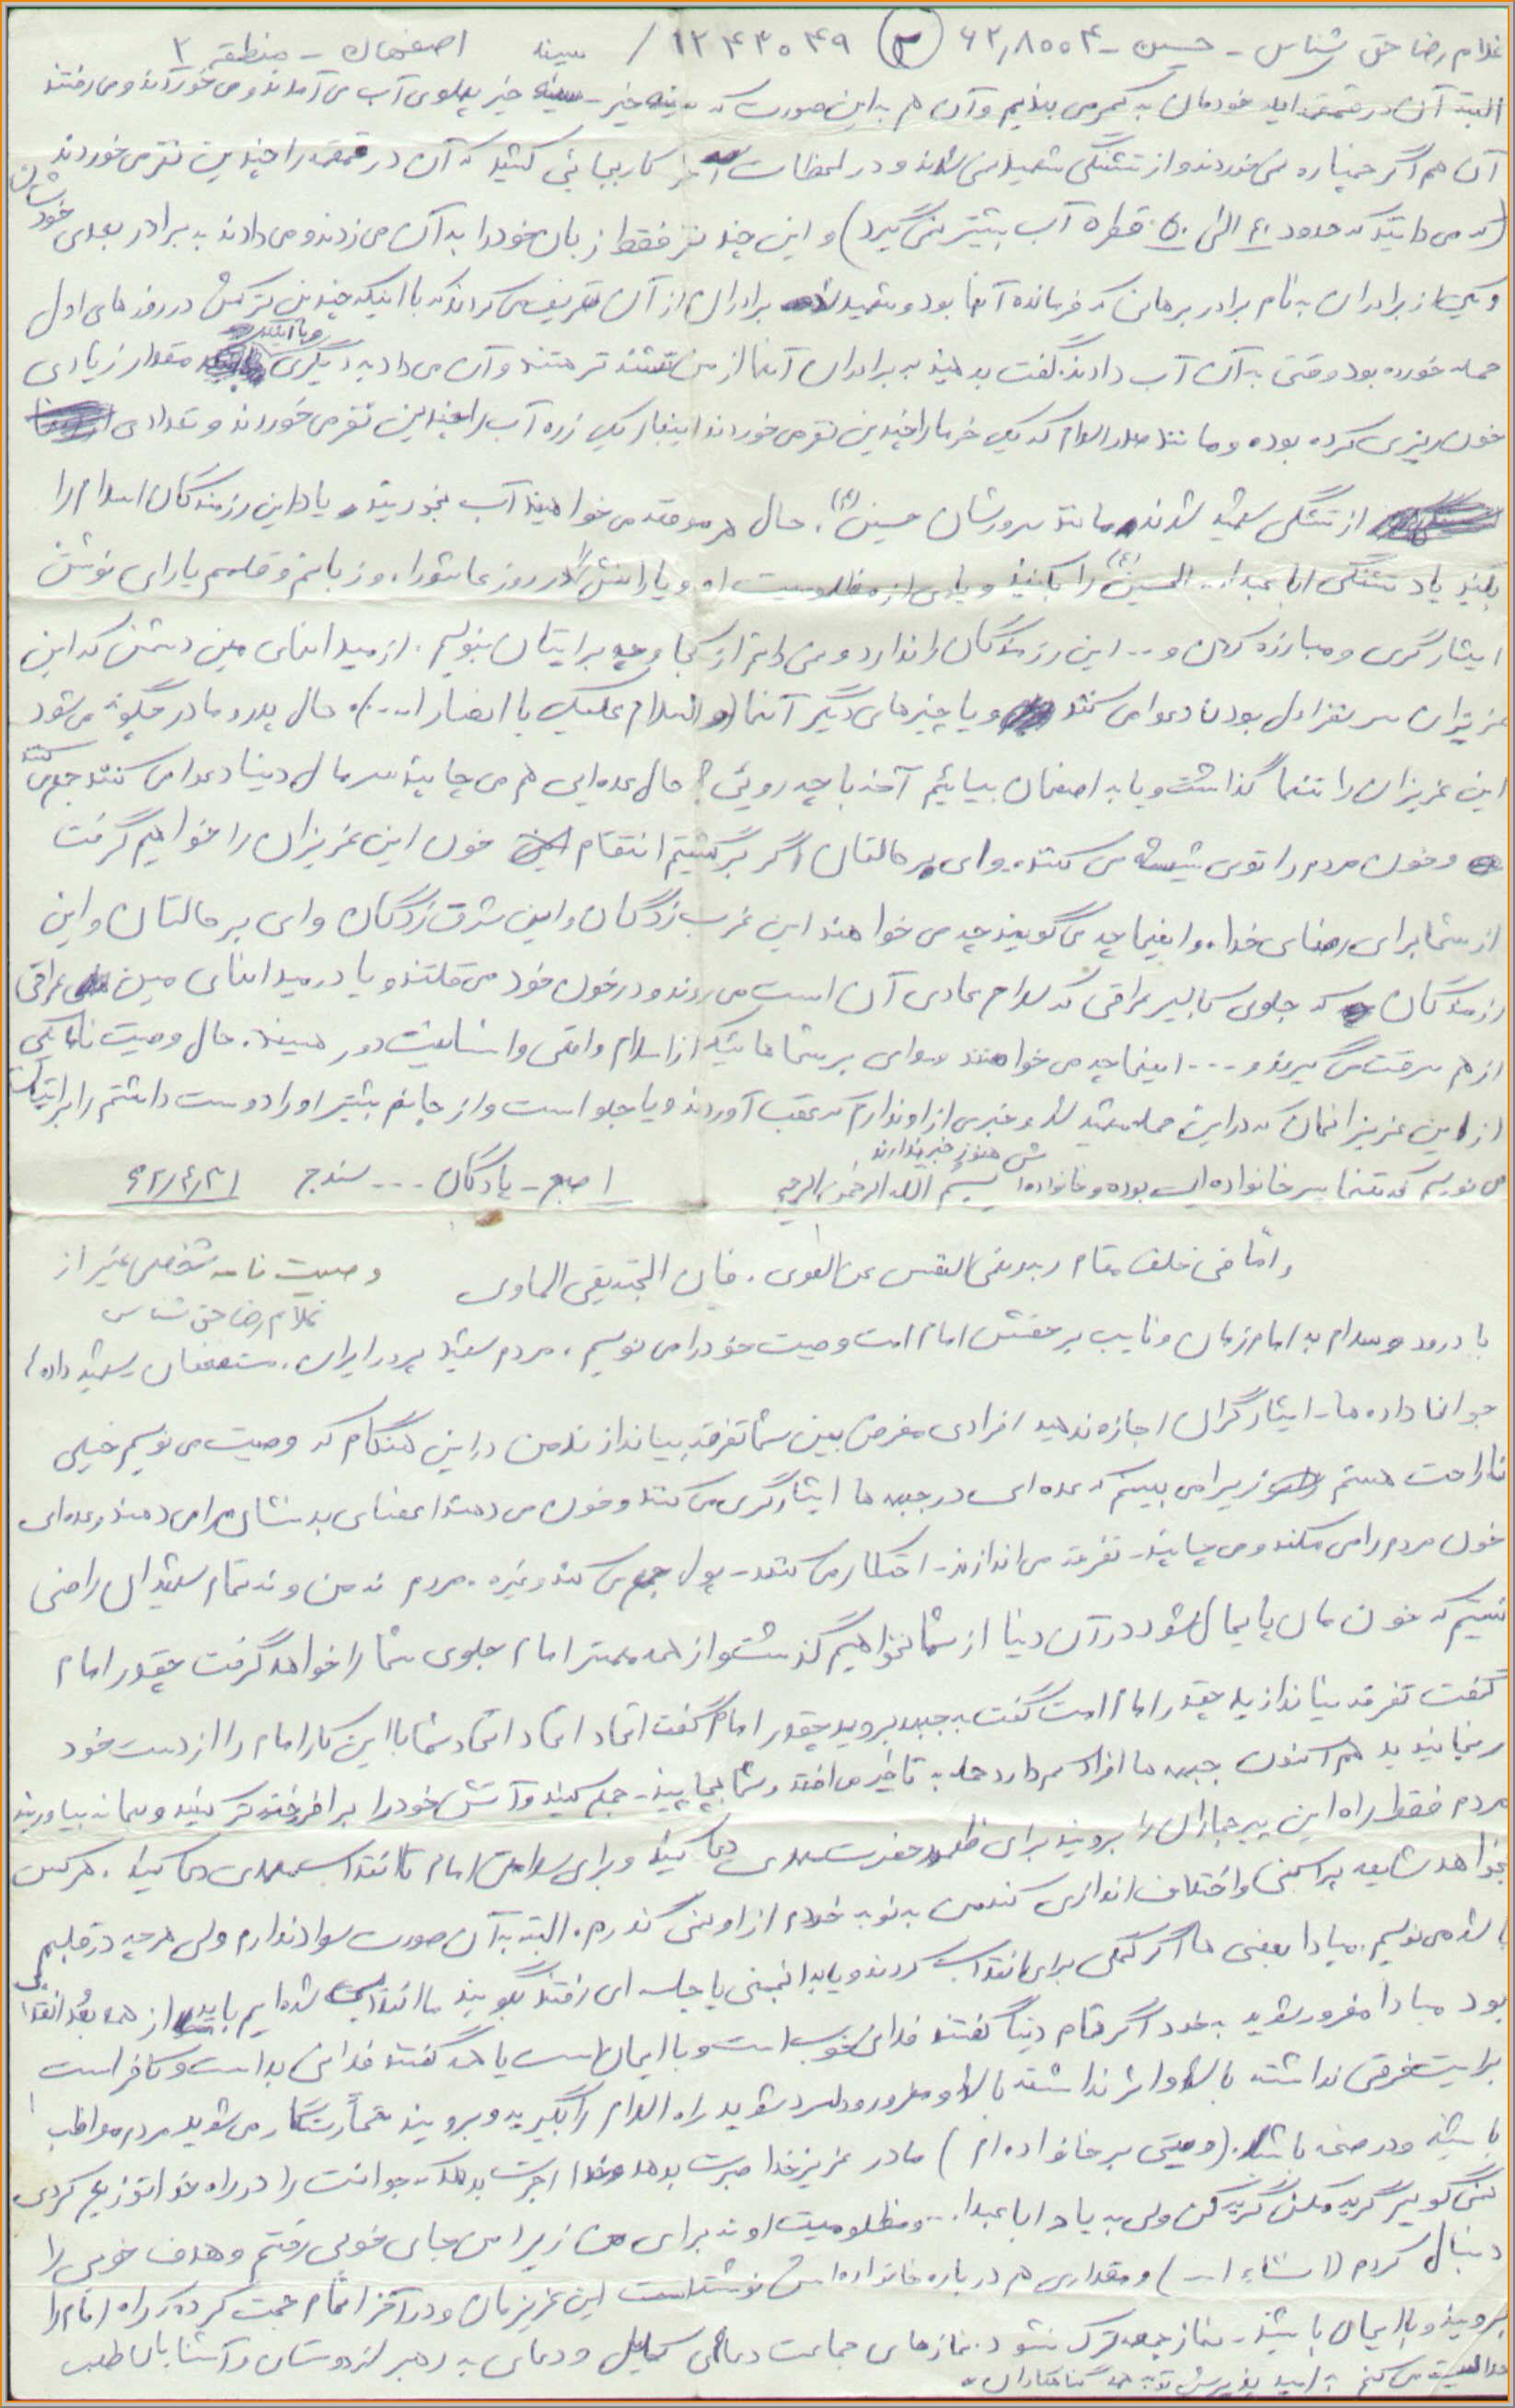 غلام رضا حق شناس - حسین - ۶۲،۸۰۰۴ (۲) ۱۲۴۳۰۴۹ / سینه اصفهان - منطقه ۲
البته آن در قمقمه‌ای که خودمان به کمر می‌بندیم و آن هم به این صورت که سینه خیز - سینه خیز پهلوی آب می‌آمدند و می‌خوردند و می‌رفتند
آن هم اگر خمپاره نمی‌خوردند و از تشنگی شهید نمی‌شدند و در لحظات آخر کار بجایی کشید که آن در قمقمه را چندین نفر می‌خوردند
(که می‌دانید که حدود ۴۰ الی ۵۰ قطره آب بیشتر نمی‌گیرد) و این چند نفر فقط زبان خود را به آن می‌زدند و می‌دادند به برادر بعدی خودشان
و یکی از برادران به نام برادر برهانی که فرمانده آنها بود و شهید شد برادران از آن تعریف می‌کردند که با اینکه چندین ترکش در روزهای اول
حمله خورده بود وقتی به آن آب دادند گفت بدهید به برادران آنها از من تشنه‌تر هستند و آن می‌داد به دیگری و با آنکه مقدار زیادی
خون‌ریزی کرده بوده و مانند صدر اسلام که یک خرما را چندین نفر می‌خوردند اینبار یک زره آب را چندین نفر می‌خوردند و تعدادی
از تشنگی شهید شدند مانند سرورشان حسین (ع). حال هر موقع می‌خواهید آب بخورید یاد این رزمندگان اسلام را
بکنید یاد تشنگی ابا عبدا... الحسین (ع) را بکنید و یادی از مظلومیت او و یارانش در روز عاشورا. و زبانم و قلمم یارای نوشتن
ایثارگری و مبارزه کردن و... این رزمندگان را ندارد و نمی‌دانم از کجا و چه برایتان بنویسم. از میدانهای مین دشمن که این
عزیزان سر نفر اول بودن دعوا می‌کنند و یا چیزهای دیگر آنها (السلام علیک یا انصار ا...). حال پدر و مادر چگونه می‌شود
این عزیزان را تنها گذاشت و یا به اصفهان بیائیم آخه با چه روئی؟ حال عده‌ایی هم می‌چاپند سر مال دنیا دعوا می‌کنند جمع می‌کنند
و خون مردم را توی شیشه می‌کنند. وای بر حالتان اگر برگشتیم انتقام خون این عزیزان را خواهیم گرفت
از شما برای رضای خدا. و اینها چه می‌گویند چه می‌خواهند این غرب زدگان و این شرق زدگان وای بر حالتان و این
رزمندگان که جلوی کالیبر عراقی که سلاح عادی آن است می‌روند و در خون خود می‌غلتند و یا در میدانهای مین عراقی
از هم سرقت می‌گیرند و... اینها چه می‌خواهند و وای بر شما ها شیکه از اسلام واقعی و انسانیت دور هستید. حال وصیت نامه یکی
از این عزیزانمان که در این حمله شهید شد و خبری از او ندارم که عقب آوردند و یا جلو است و از جانم بیشتر او را دوست داشتم را برایتان
می‌نویسم که تنها پسر خانواده‌ایی بوده و خانواده‌اش هنوز خبر ندارند بسم الله الرحمن الرحیم ۱ صبح - پادگان ... سنندج ۶۲/۴/۳۱
و امّا من خاف مقام ربه و نهی النفس عن الهوی. فان الجنه هی الماوی وصیت نامه شخصی غیر از
غلام رضا حق شناس
با درود و سلام به امام زمان و نایب بر حقش امام امت وصیت خود را می‌نویسم. مردم شهید پرور ایران. مستضعفان. شهید داده‌ها
جوانها داده‌ها - ایثارگران اجازه ندهید افرادی مغرض بین شما تفرقه بیاندازند من در این هنگام که وصیت می‌نویسم خیلی
ناراحت هستم زیرا می‌بینم که عده‌ای در جبهه‌ها ایثارگری می‌کنند و خون می‌دهند اعضای بدنشان را می‌دهند و عده‌ای
خون مردم را می‌مکند و می‌چاپند - تفرقه می‌اندازند - احتکار می‌کنند - پول جمع می‌کنند و غیره. مردم نه من و نه تمام شهیدان راضی
نیستیم که خون مان پایمال شود در آن دنیا از شما نخواهیم گذشت و از همه مهمتر امام جلوی شما را خواهد گرفت چقدر امام
گفت تفرقه نیاندازید چقدر امام امت گفت به جبهه بروید چقدر امام گفت اتحاد اتحاد اتحاد شما با این کار امام را از دست خود
رنجانیدید هم اکنون جبهه‌ها افراد کم دارد حمله به تاخیر می‌افتد و شما بچاپید - جمع کنید و آتش خود را برافروخته‌تر کنید و بهانه بیاورید
مردم فقط راه این پیر جماران را بروید برای ظهور حضرت مهدی دعا کنید و برای سلامتی امام تا انقلاب مهدی دعا کنید. هر کس
بخواهد شایعه پراکنی و اختلاف اندازی کند من به نوبه خودم از او نمی‌گذرم. البته به آن صورت سواد ندارم ولی هر چه در قلبم
باشد می‌نویسم. مبادا بعضی‌ها اگر کمکی برای انقلاب کردند و یا به انجمنی یا جلسه‌ای رفتند بگویند ما انقلابی شده‌ایم باید از همه بُعد انقلابی
بود مبادا مغرور شوید به خود اگر تمام دنیا گفتند فلانی خوب است و با ایمان است یا همه گفتند فلانی بد است و کافر است
برایت فرقی نداشته باشد و اثر نداشته باشد و مغرور و دلسرد نشوید راه اسلام را بگیرید و بروید حتماً رستگار می‌شوید مردم مواظب
باشید و در صحنه باشید. (وصیتی بر خانواده‌ام) مادر عزیز خدا صبرت بدهد و خدا اجرت بدهد که جوانت را در راه خدا توزیع کردی
نمی‌گویم گریه مکن گریه کن ولی به یاد ابا عبدا... و مظلومیت او نه برای من زیرا من جای خوبی رفتم و هدف خوبی را
دنبال کردم (انشاء ا...) و مقداری هم درباره خانواده‌اش نوشته است این عزیزمان و در آخر اتمام حجت کرده که راه امام را
بروید و با ایمان باشید - نماز جمعه ترک نشود. نمازهای جماعت دعای کمیل و دعای به رهبر از دوستان و آشنایان طلب
حلالیت می‌کنم به امید پذیرش توبه همه گناهکاران.